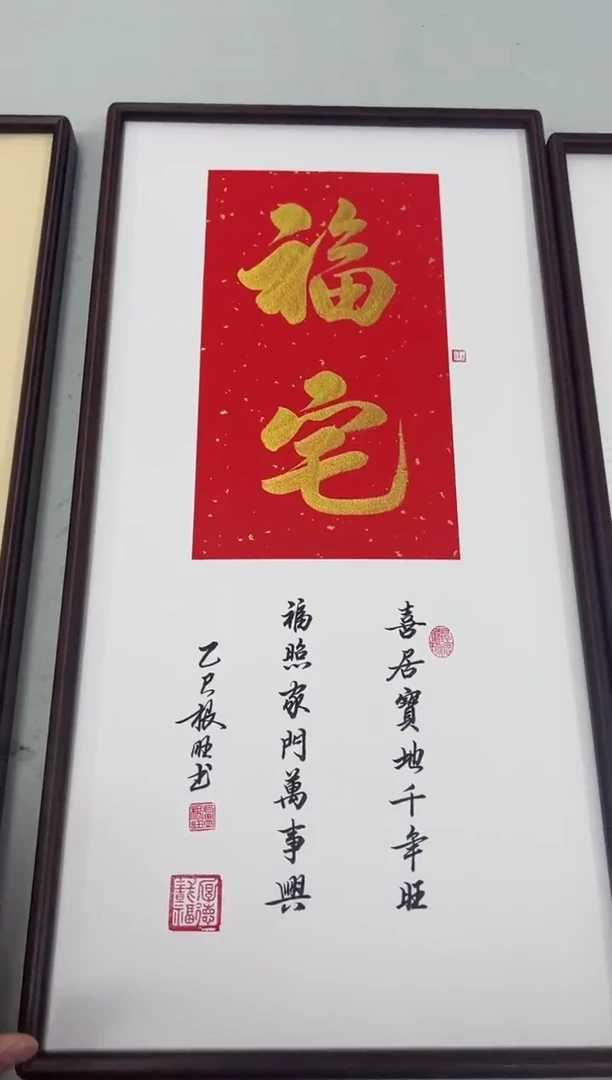 福宅
喜居寶地千年旺
福照家門萬事興
乙巳根旺书
厚德載福